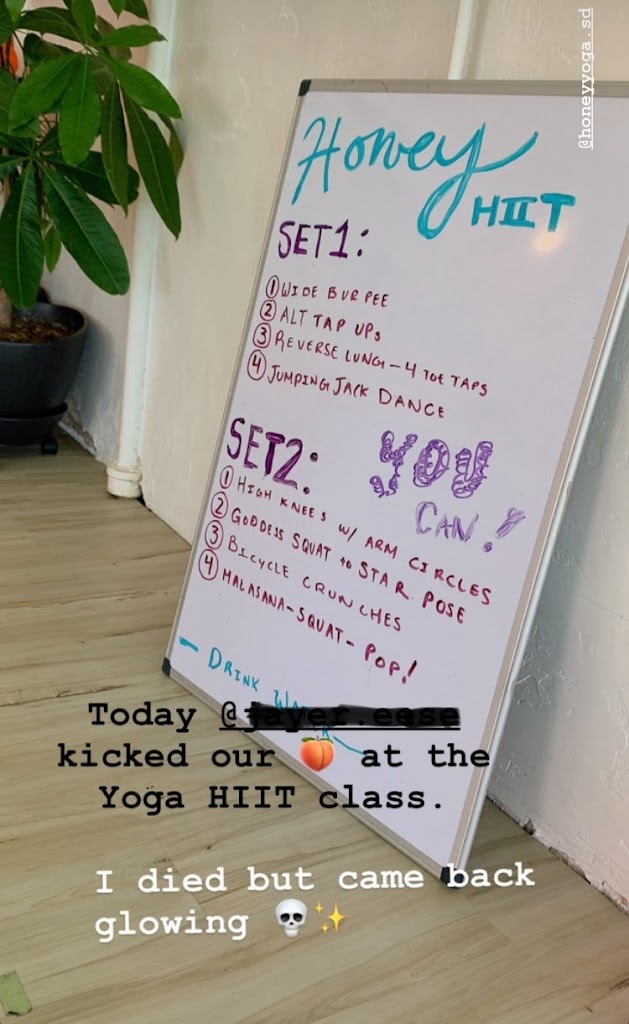 @honeyyoga.sd
Honey
HIIT
SET1:
1 WIDE BURPEE
2 ALT TAP UPs
3 REVERSE LUNG-4 TOE TAPS
4 JUMPING JACK DANCE
SET2:
YOU
CAN!
1 HIGH KNEES W/ ARM CIRCLES
2 GODDESS SQUAT to STAR POSE
3 BICYCLE CRUNCHES
4 MALASANA-SQUAT-POP!
- DRINK WATER -
Today @
kicked our 🍑 at the
Yoga HIIT class.
I died but came back
glowing 💀✨